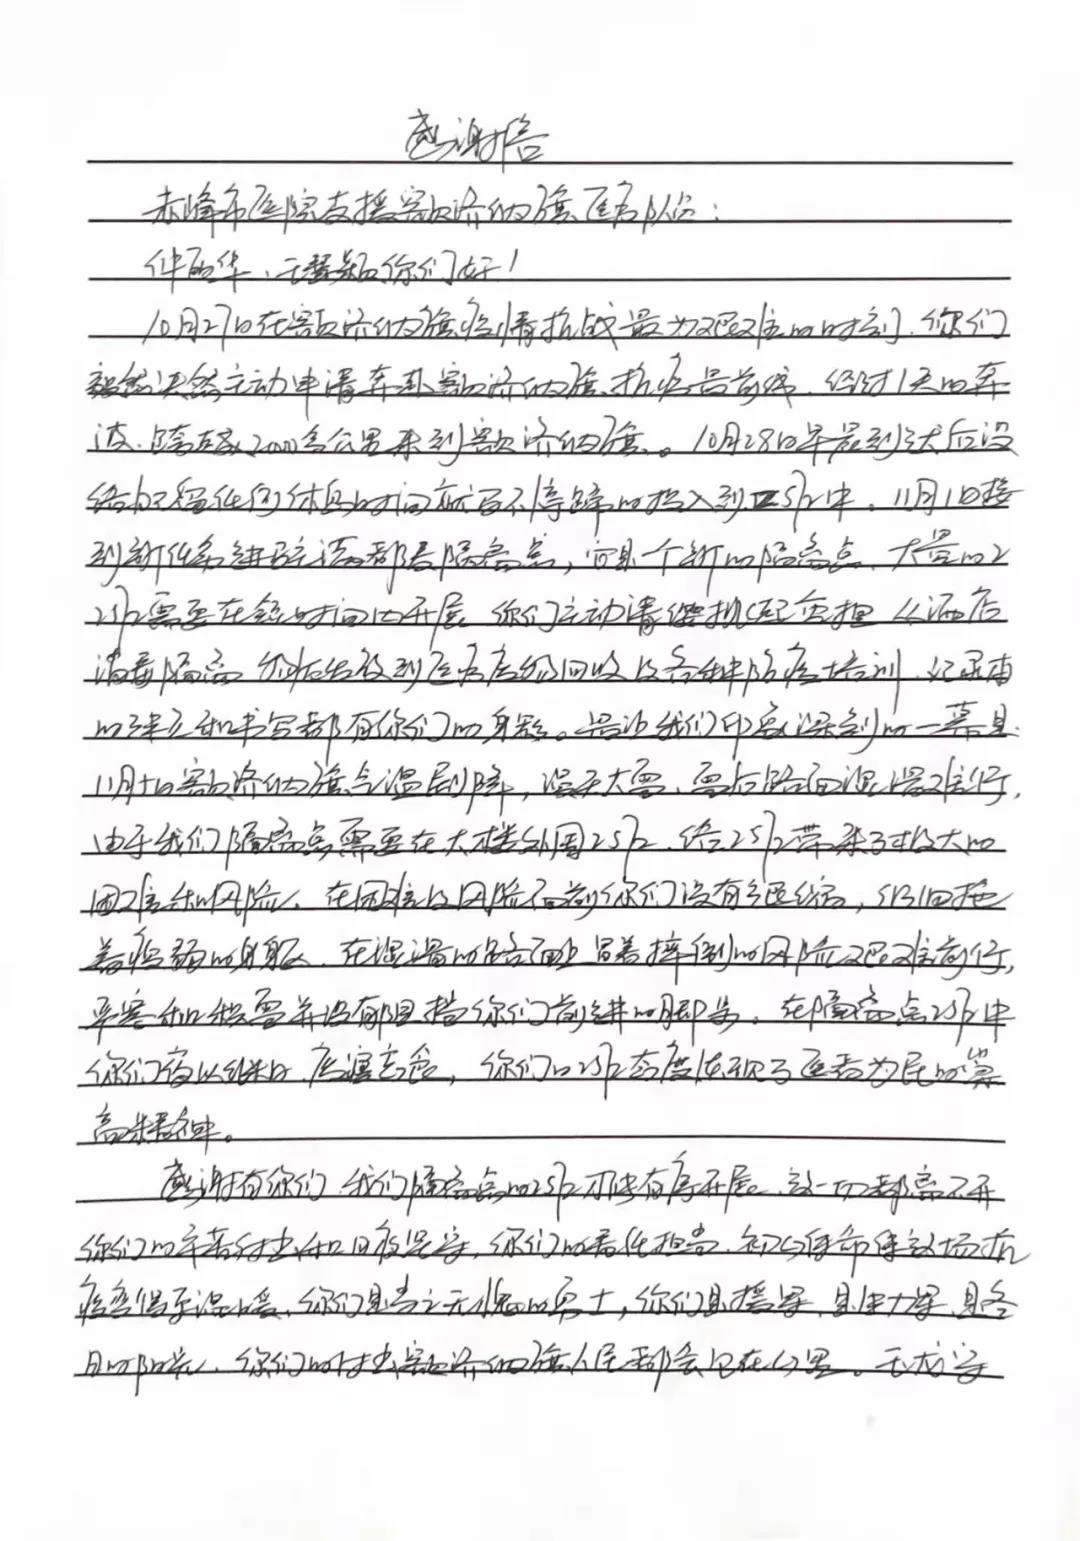 感谢信
赤峰市医院支援额济纳旗医务队伍:
仲丽华、于慧颖你们好!
10月27日在额济纳旗疫情抗战最为艰难的时刻,你们
毅然决然主动申请奔赴额济纳旗抗疫最前线,经过1天的奔
波,跨越2000余公里来到额济纳旗。10月28日早晨到达后没
给自己留任何休息时间就马不停蹄的投入到工作中,11月1日接
到新任务进驻语都君隔离点,这是个新的隔离点,大量的工
作需要在短时间内开展,你们主动请缨挑起重担,从酒店
消毒隔离、物品发放到医疗废物回收及各种防疫培训,记录本
的建立和书写都有你们的身影。最让我们印象深刻的一幕是
11月十日额济纳旗气温剧降,漫天大雪,雪后路面湿滑难行,
由于我们隔离点需要在大楼外围工作,给工作带来了极大的
困难和风险,在困难及风险面前你们没有退缩,仍旧拖
着疲弱的身躯,在湿滑的路面上冒着摔倒的风险艰难前行,
严寒和积雪并没有阻挡你们前进的脚步。在隔离点工作中
你们夜以继日,废寝忘食,你们的工作态度体现了医者为民的崇
高精神。
感谢有你们,我们隔离点的工作才使有序开展,这一切都离不开
你们的辛苦付出和日夜坚守,你们的责任担当、初心使命使这场抗
疫变得至温暖,你们是当之无愧的勇士,你们是援军,是生力军,是冬
日的阳光,你们的付出额济纳旗人民都会记在心里。无龙字